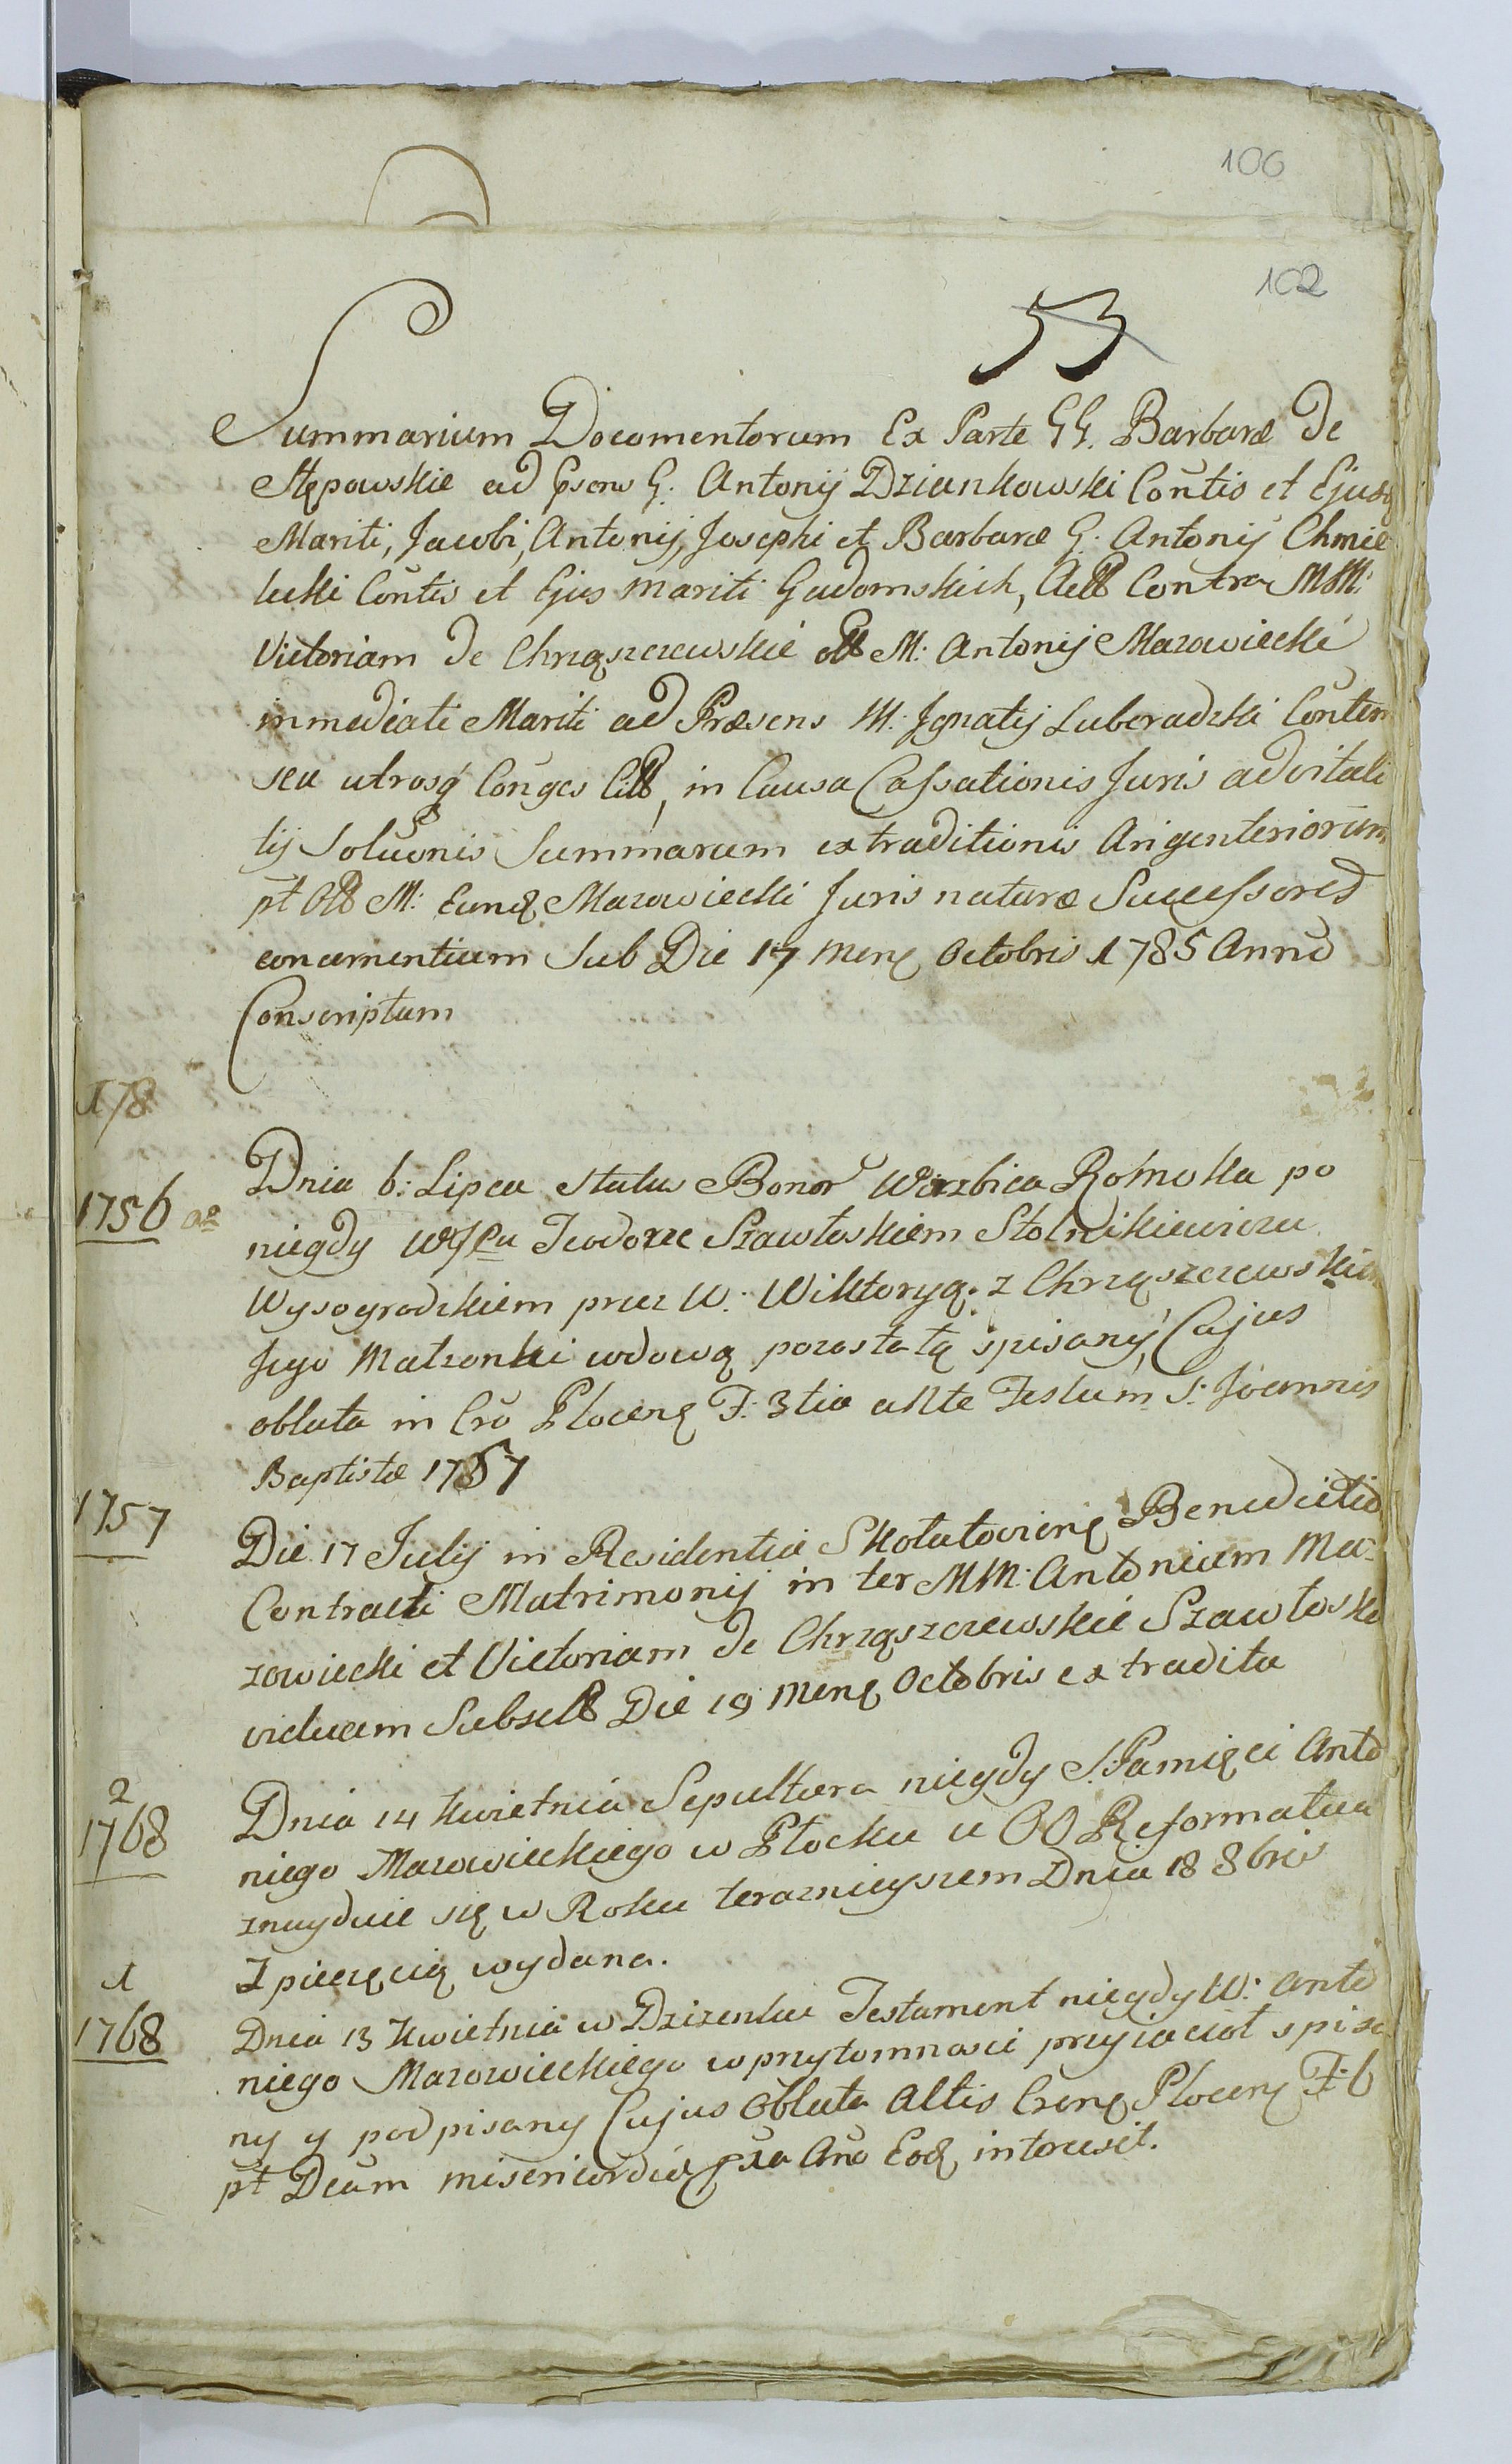 106
102
53
Summarium Documentorum Ex Parte GG. Barbaræ De
Stępowskie ad Psens G. Antonij Dziankowski Contis et Ejusq
Mariti, Jacobi, Antonij, Josephi et Barbaræ G. Antonij Chmie
lecki Contis et Ejus Mariti Gadomskich, Contra MM:
Victoriam de Chrząszczewskie M: Antonij Mazowiecki
immediati Mariti ad Præsens M: Jgnatij Luberadzki Contem
seu utrosq Conges, in Causa Cassationis Juris advitali
tij Soluonis Summarum extraditionis Argenteriorum
pt M: Eunq Mazowiecki Juris naturæ Successores
concernentium Sub Die 17 Menq Octobris 1785 Anno
Conscriptum
178
1756
Dnia 6: Lipca Status Bonor Wierzbica Romoka po
niegdy Teodorze Szawłoskiem Stolnikiewiczu
Wysogrodzkiem przez W: Wiktoryą z Chrząszczewskich
Jego Małżonki wdową pozostałą spisany, Cujus
oblata in Cro Plocenq F: 3tia ante Festum S: Joannis
Baptistæ 1757
1757
Die 17 Julij in Residentia Benedictio
Contracti Matrimonij in ter MM: Antonium Ma=
zowiecki et Victoriam de Chrząszczewskie Szawłoska
viduam Die 19 Menq Octobris extradita
2
1768
Dnia 14 Kwietnia Sepultura niegdy S: Pamięci Anto
niego Mazowieckiego w Płocku u OO Reformatua
znayduie się w Roku teraznieyszem Dnia 18 8bris
z pieczęcią wydana.
1
1768
Dnia 13 Kwietnia w Testament niegdy W: Anto
niego Mazowieckiego w przytomnosci przyiacioł spisa
ny y podpisany Cujus Oblata Altis Crenq Plocenq F: 6
pt Dcam misericordiæ Ano Eoq intercesit.